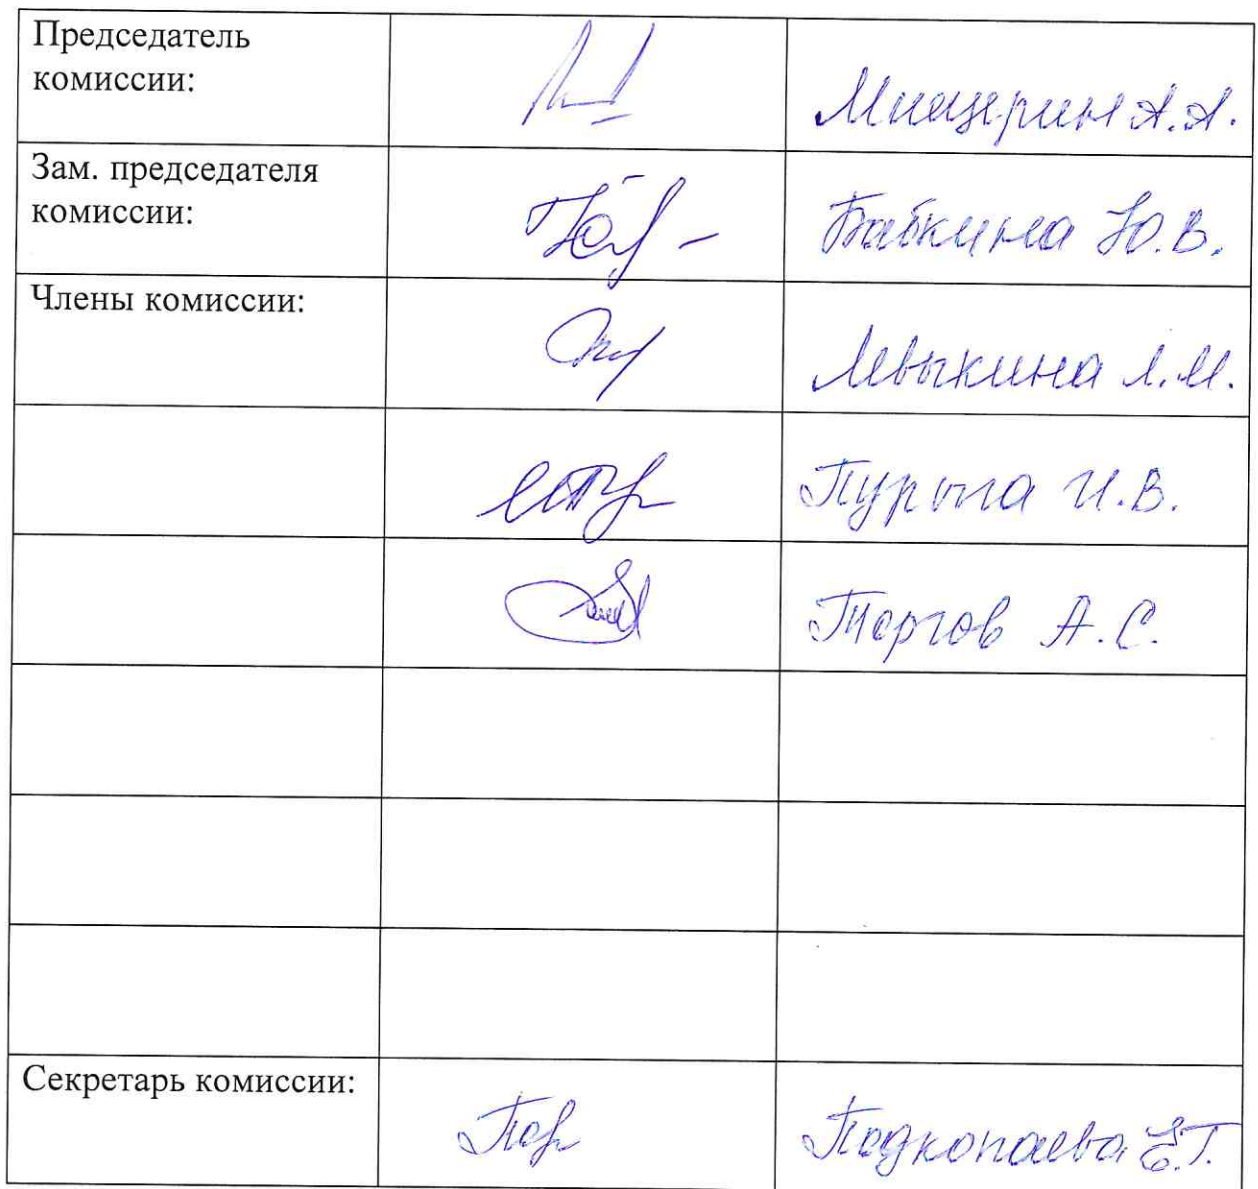 Председатель
комиссии:
Мищерин А.А.
Зам. председателя
комиссии:
Бабкина Ю.В.
Члены комиссии:
Левыкина Л.М.
И.В.
А.С.
Секретарь комиссии:
Подкопаева Е.Т.